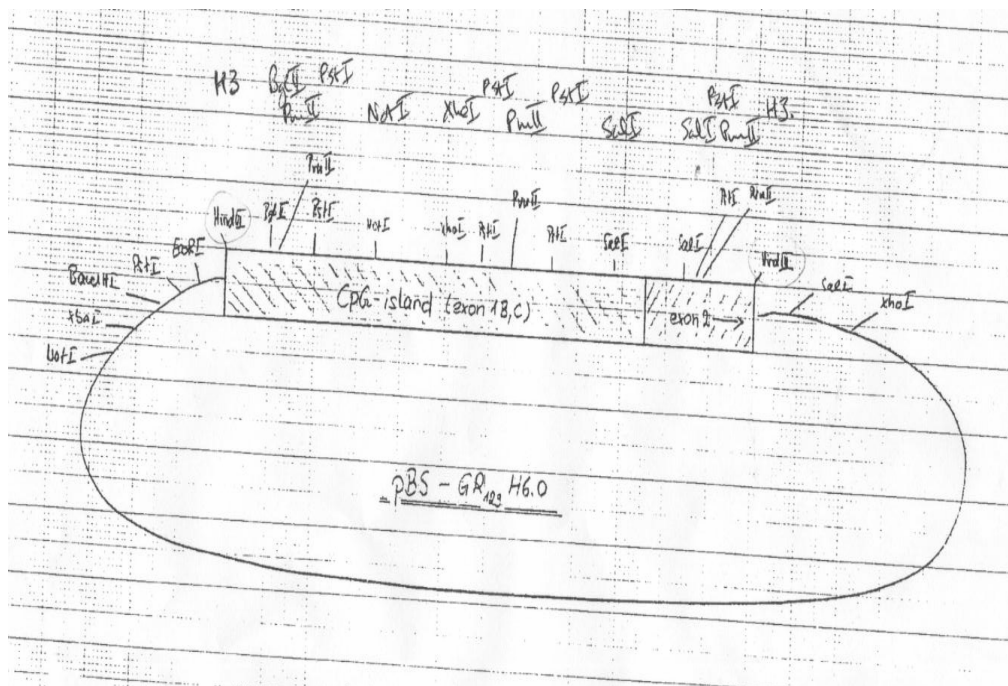 H3 BglII PstI NotI XhoI PstI PvuII PstI SalI PstI H3.
PvuII SalI PvuII
PvuII
HindIII BglII PstI NotI XhoI PstI PvuII PstI SalI SalI PstI PvuII HindIII
EcoRI
PstI
BamHI
XbaI
NotI
CpG-island (exon 1B,C)
exon 2 →
SalI
XhoI
pBS - GR H6.0